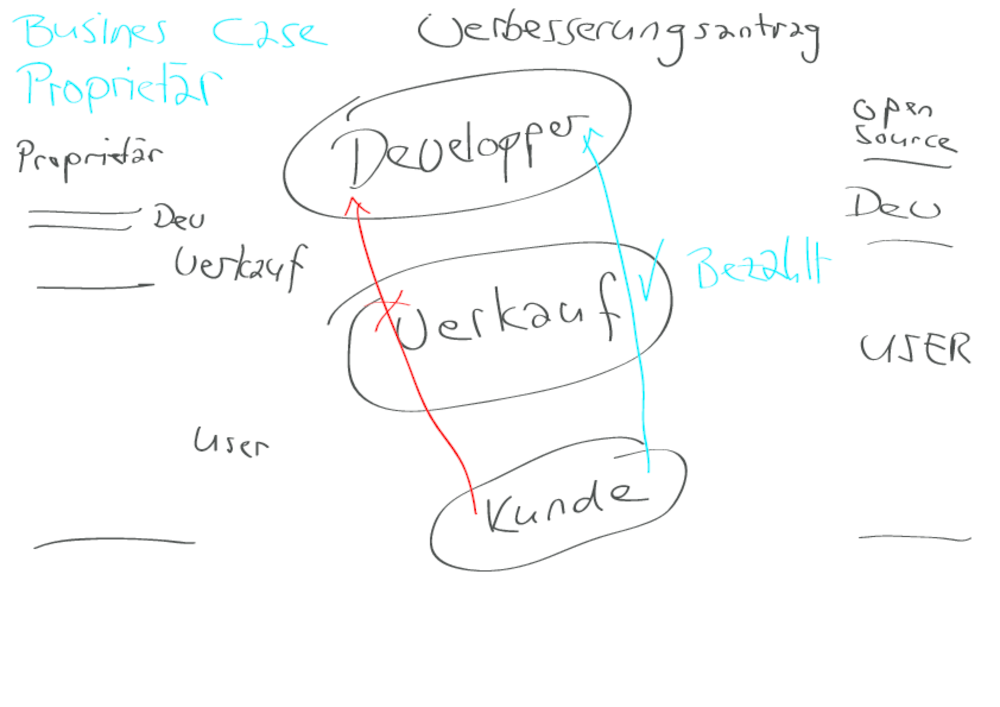 Busines Case
Proprietär
Verbesserungsantrag
Proprietär
Dev
Verkauf
User
Developper
Verkauf
Bezahlt
Kunde
Open
Source
Dev
USER